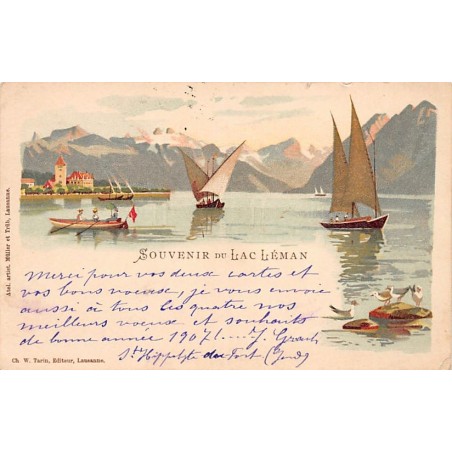 SOUVENIR DU LAC LÉMAN
Merci pour vos deux cartes et
vos bons voeux, je vous envoie
aussi à tous les quatre nos
meilleurs voeux et souhaits
de bonne année 1907.
St Hippolyte du Fort (Gard)
Atel. artist. Müller et Trüb, Lausanne.
Ch. W. Tarin, Editeur, Lausanne.